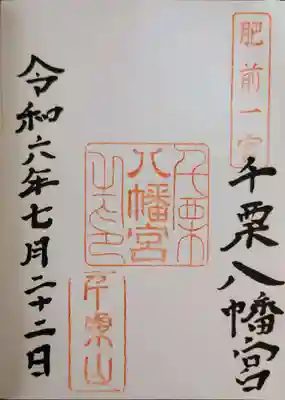 肥前一宮
千栗八幡宮
千栗
八幡宮
之印
千栗山
令和六年七月二十二日